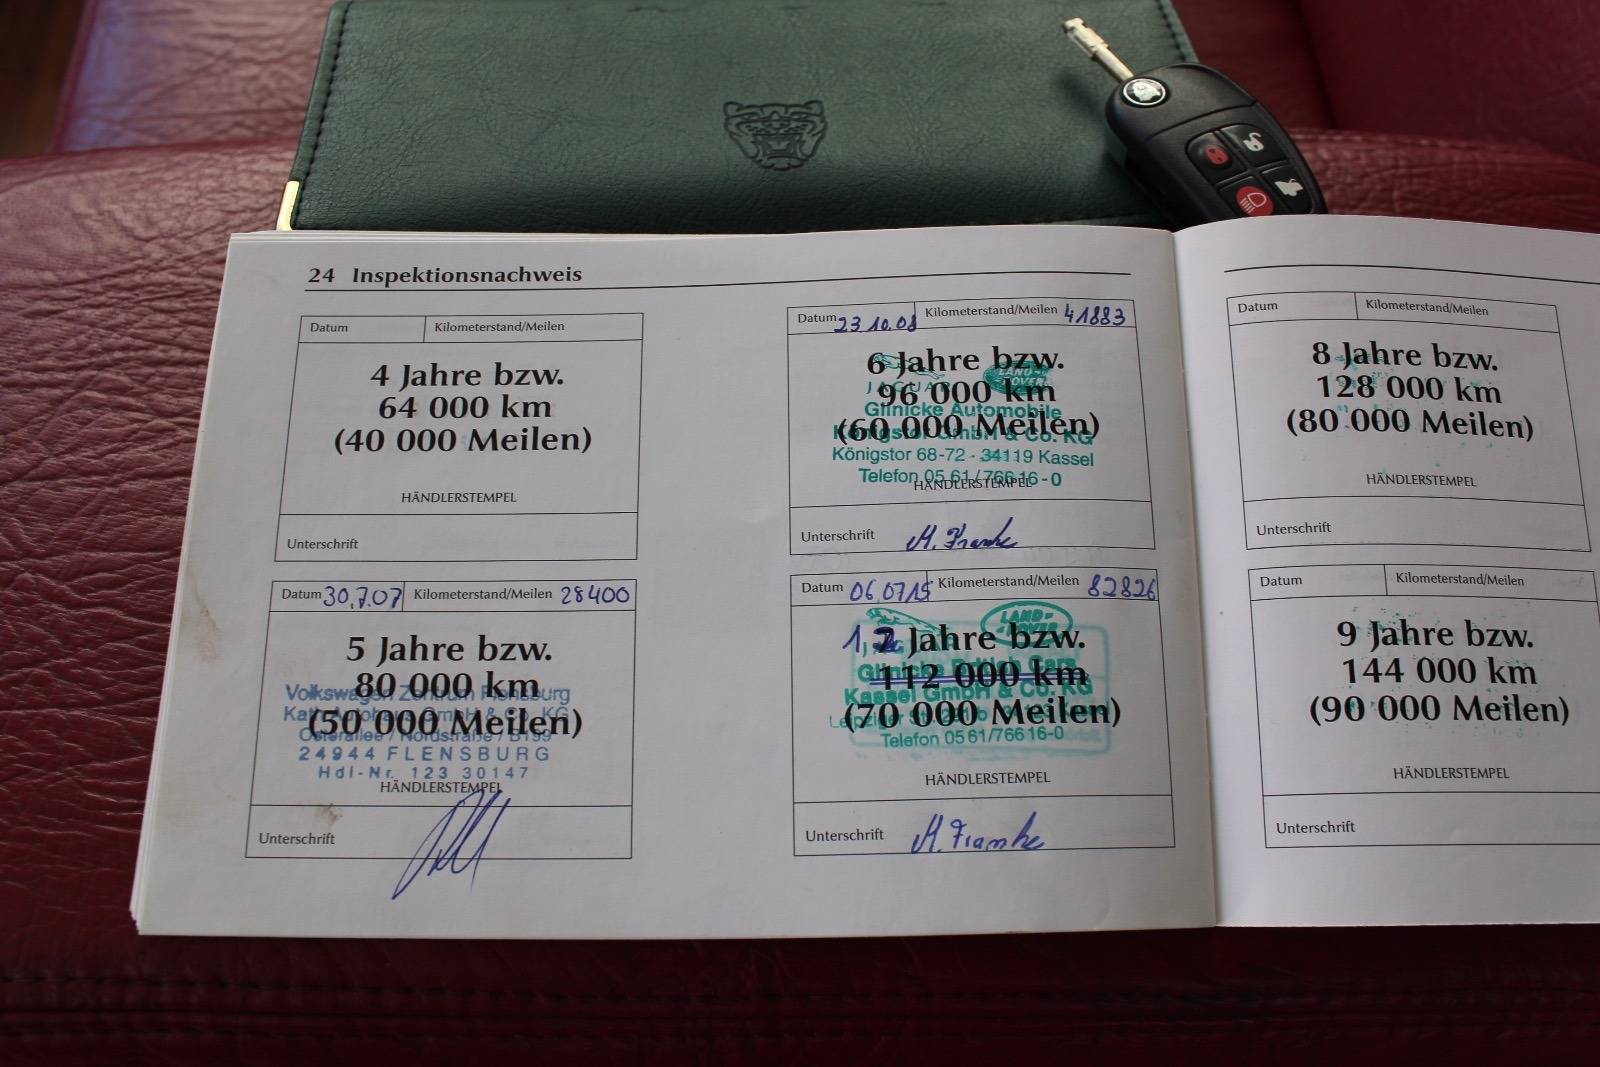 24 Inspektionsnachweis
Datum Kilometerstand/Meilen
4 Jahre bzw.
64 000 km
(40 000 Meilen)
HÄNDLERSTEMPEL
Unterschrift
Datum 30.7.07 Kilometerstand/Meilen 28400
5 Jahre bzw.
80 000 km
(50 000 Meilen)
Volkswagen Zentrum Flensburg
Kath Autohaus GmbH & Co. KG
Osterallee / Nordstraße / B199
24944 FLENSBURG
Hdl-Nr. 123 30147
HÄNDLERSTEMPEL
Unterschrift
Datum 23.10.08 Kilometerstand/Meilen 41883
6 Jahre bzw.
96 000 km
(60 000 Meilen)
JAGUAR
LAND-ROVER
Glinicke Automobile
Königstor GmbH & Co. KG
Königstor 68-72 · 34119 Kassel
Telefon 05 61/766 16-0
HÄNDLERSTEMPEL
Unterschrift M. Franke
Datum 06.07.15 Kilometerstand/Meilen 82826
Jahre bzw.
112 000 km
(70 000 Meilen)
LAND-ROVER
Glinicke British Cars
Kassel GmbH & Co. KG
Leipziger Str.
Telefon 05 61/766 16-0
HÄNDLERSTEMPEL
Unterschrift M. Franke
Datum Kilometerstand/Meilen
8 Jahre bzw.
128 000 km
(80 000 Meilen)
HÄNDLERSTEMPEL
Unterschrift
Datum Kilometerstand/Meilen
9 Jahre bzw.
144 000 km
(90 000 Meilen)
HÄNDLERSTEMPEL
Unterschrift